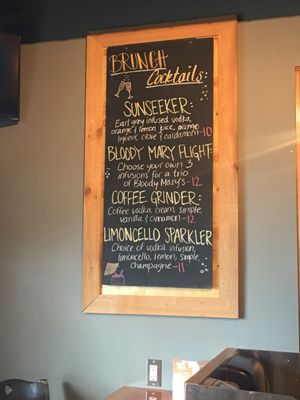 BRUNCH
Cocktails:
SUNSEEKER:
Earl grey infused vodka,
orange & lemon juice, orange
liqueur, clove & cardamom-10
BLOODY MARY FLIGHT:
Choose your own 3
infusions for a trio
of Bloody Mary's-12
COFFEE GRINDER:
Coffee vodka, cream, simple,
vanilla & cinnamon-12
LIMONCELLO SPARKLER
Choice of vodka infusion,
limoncello, lemon, simple,
champagne-11